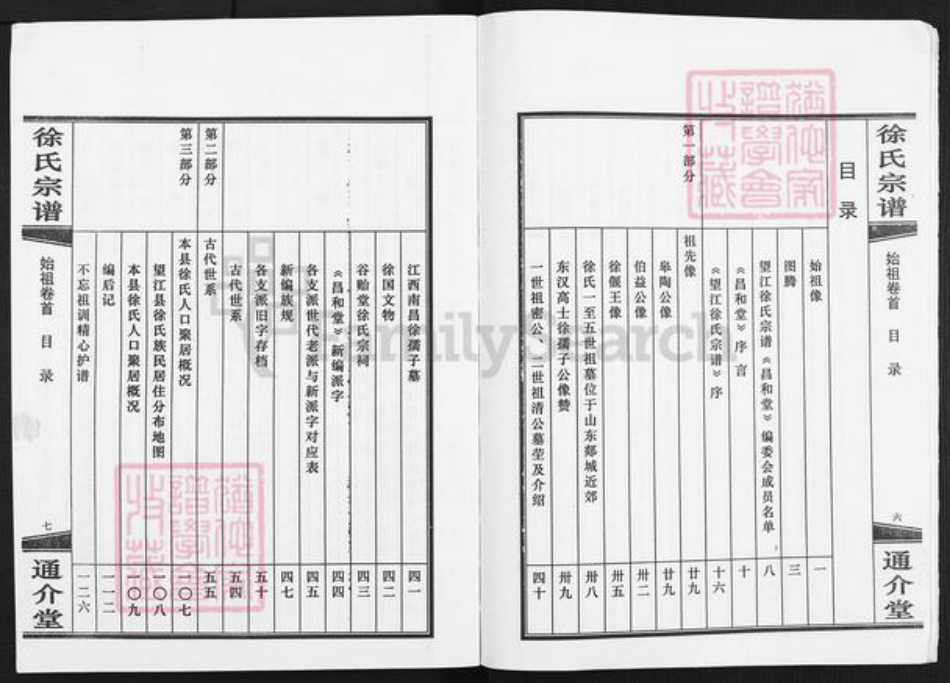 徐氏宗谱
始祖卷首 目录
六
通介堂
目录
始祖像 一
图腾 三
望江徐氏宗谱《昌和堂》编委会成员名单 八
《昌和堂》序言 十
《望江徐氏宗谱》序 十六
第一部分
祖先像 廿九
皋陶公像 廿九
伯益公像 卅二
徐偃王像 卅五
徐氏一至五世祖墓位于山东郯城近郊 卅八
东汉高士徐孺子公像赞 卅九
一世祖密公、二世祖清公墓茔及介绍 四十
江西南昌徐孺子墓 四一
徐国文物 四二
谷贻堂徐氏宗祠 四三
《昌和堂》新编派字 四四
各支派世代老派与新派字对应表 四五
新编族规 四七
各支派旧字存档 五十
古代世系 五四
第二部分
古代世系 五五
第三部分
本县徐氏人口聚居概况 一〇七
望江县徐氏族民居住分布地图 一〇八
本县徐氏人口聚居概况 一〇九
编后记 一一二
不忘祖训精心护谱 一二六
徐氏宗谱
始祖卷首 目录
七
通介堂
FamilySearch